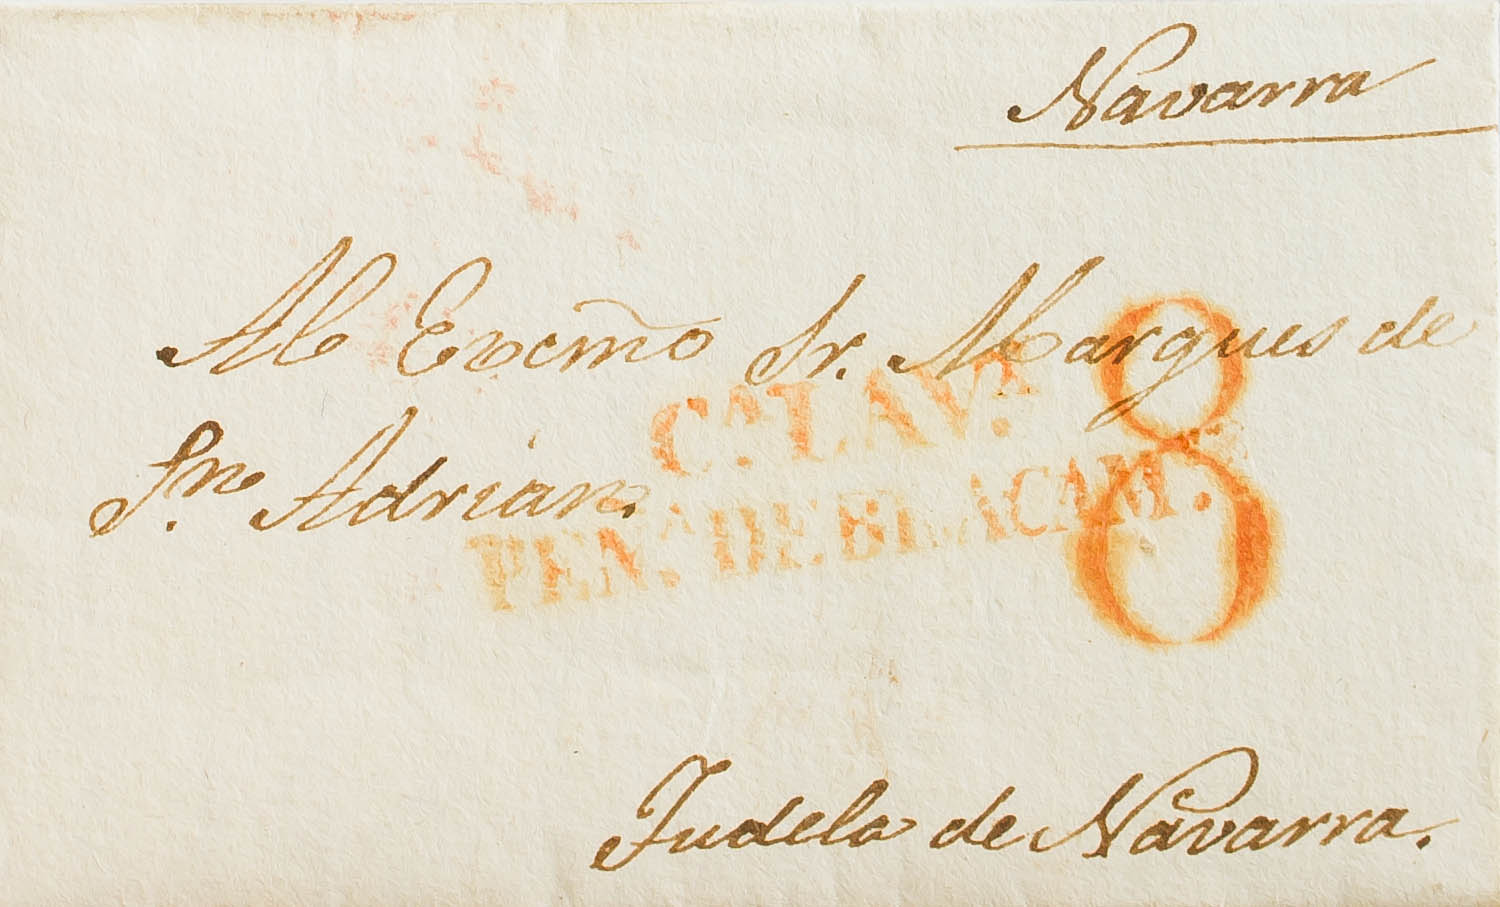 Navarra
Al Excmo Sr. Marques de
Sn. Adrian.
8
CA. LAV.A
PEN.A DE BLACAM.
Tudela de Navarra.